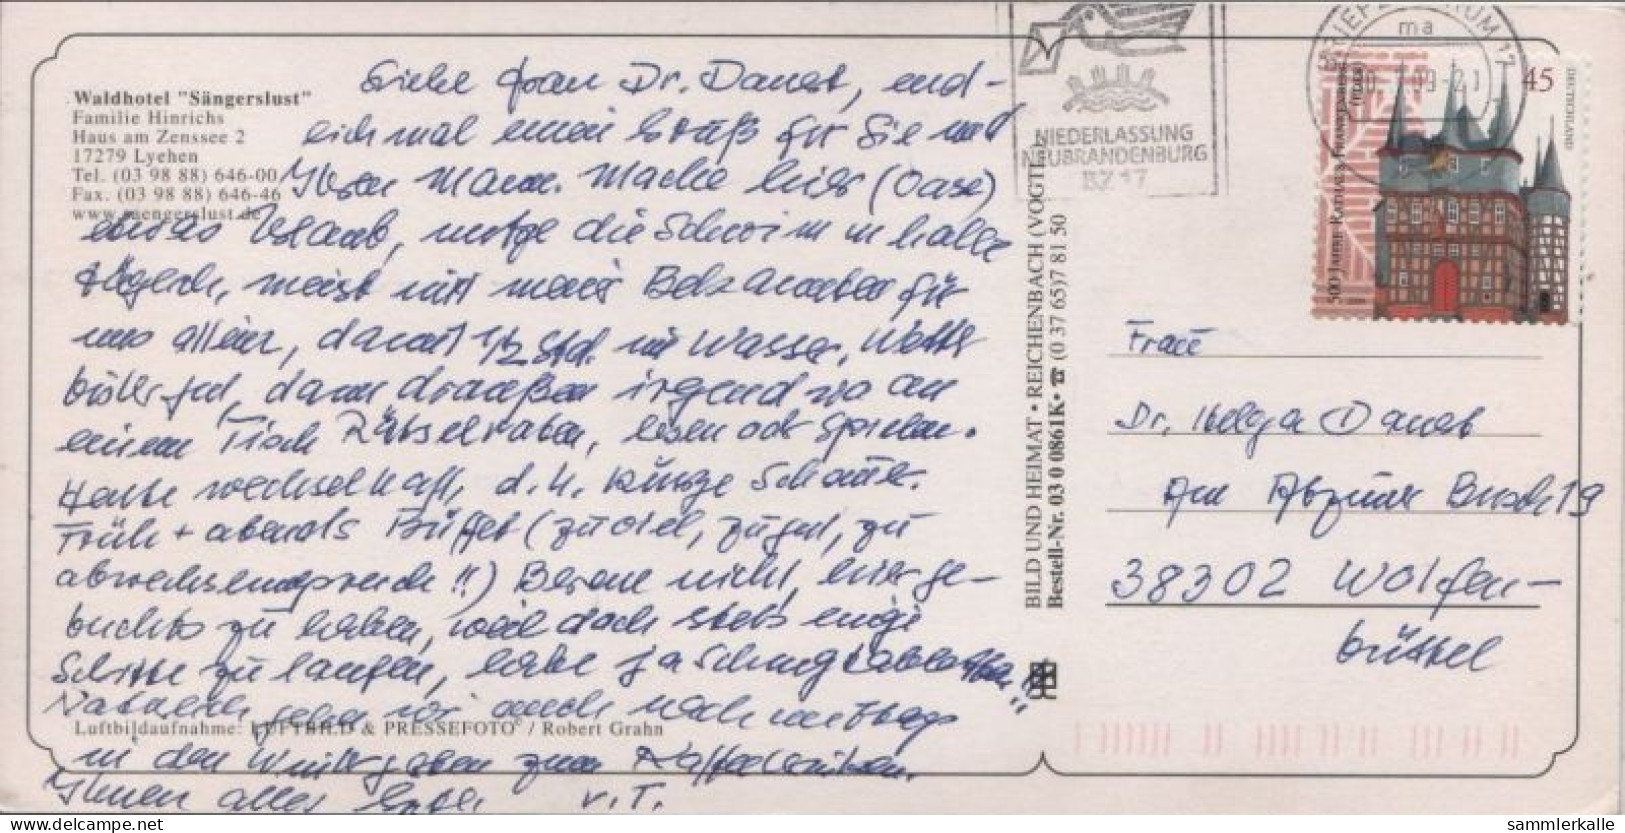 Waldhotel "Sängerslust"
Familie Hinrichs
Haus am Zenssee 2
17279 Lychen
Tel. (03 98 88) 646-00
Fax. (03 98 88) 646-46
www.saengerslust.de
Liebe Frau Dr. Daneb, end-
lich mal einen Gruß für Sie und
Ihren Mann. Mache hier (Oase)
etwas Urlaub, nutze die Schwimmhalle
täglich, meist mit meiner für
uns allein, damit 1/2 Std. im Wasser, Wetter
dann draußen irgendwo an
einem Tisch Rätselraten, lesen oder Spielen.
Heute wechselhaft, d.h. kurze Schauer.
Früh + abends Büffet (zuviel, zu gut, zu
abwechslungsreich!!) Bereue nicht, hier ge-
bucht zu haben, weil doch stets einige
Schritte zu laufen, habe ja
Natürlich gehen wir auch nachmittags
in den Wintergarten zum Kaffeetrinken.
Ihnen alles Gute. V.T.
Luftbildaufnahme: LUFTBILD & PRESSEFOTO / Robert Grahn
BILD UND HEIMAT • REICHENBACH (VOGTL
Bestell-Nr. 03 0 0861K • ☎ (0 37 65) 7 81 50
NIEDERLASSUNG
NEUBRANDENBURG
BZ 17
BRIEFZENTRUM 17
ma
500 JAHRE RATHAUS FRANKENBERG (EDER)
45
DEUTSCHLAND
Frau
Dr. Helga Daneb
Am Busch 19
38302 Wolfen-
büttel
sammlerkalle